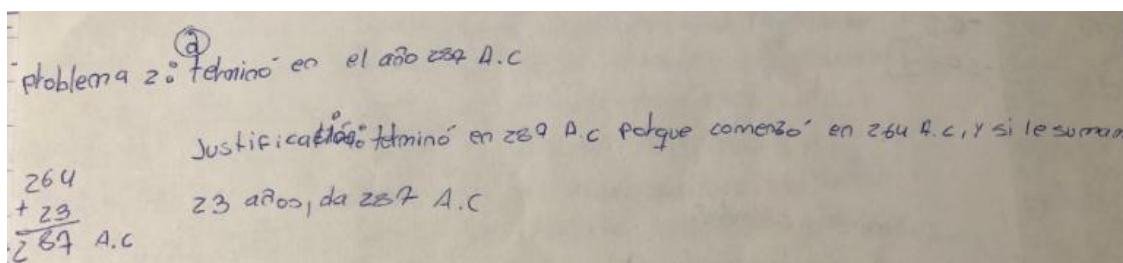 a
problema 2: terminó en el año 287 A.C
Justificación: terminó en 287 A.C porque comenzó en 264 A.C, y si le suman
23 años, da 287 A.C
264
+ 23
287 A.C